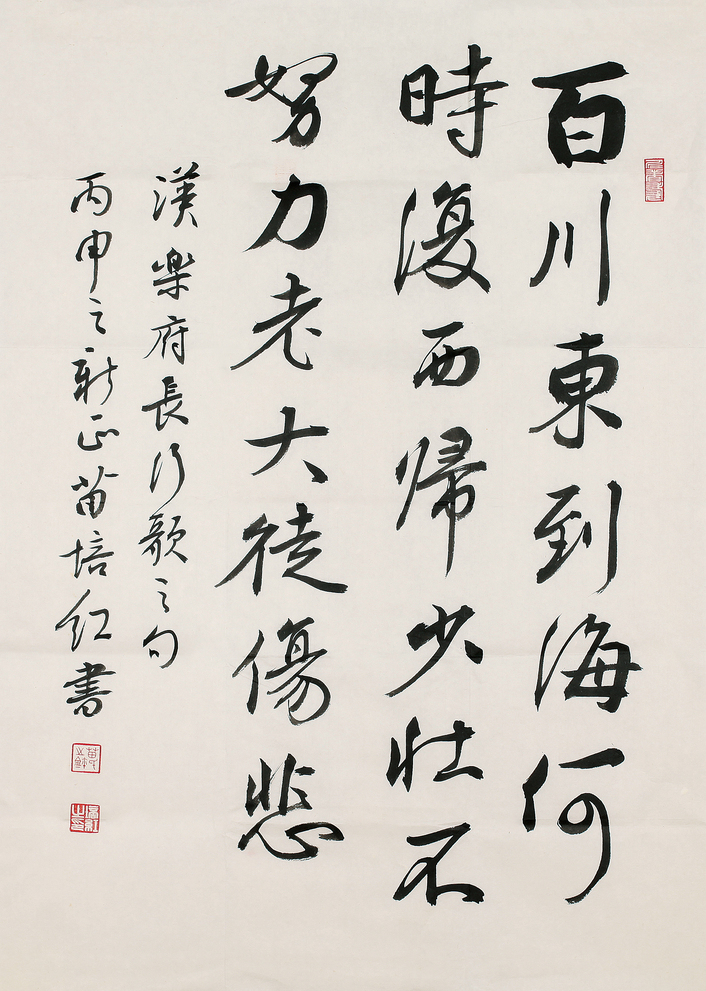 百川東到海何
時復西帰少壯不
努力老大徒傷悲
漢樂府長行歌之句
丙申之新正苗培红書